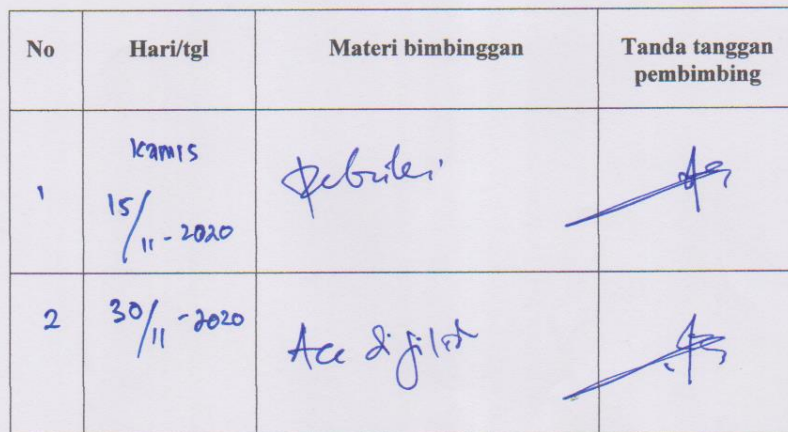 No Hari/tgl Materi bimbinggan Tanda tanggan
pembimbing
1 Kamis
15/11-2020
2 30/11-2020 Acc di jilid